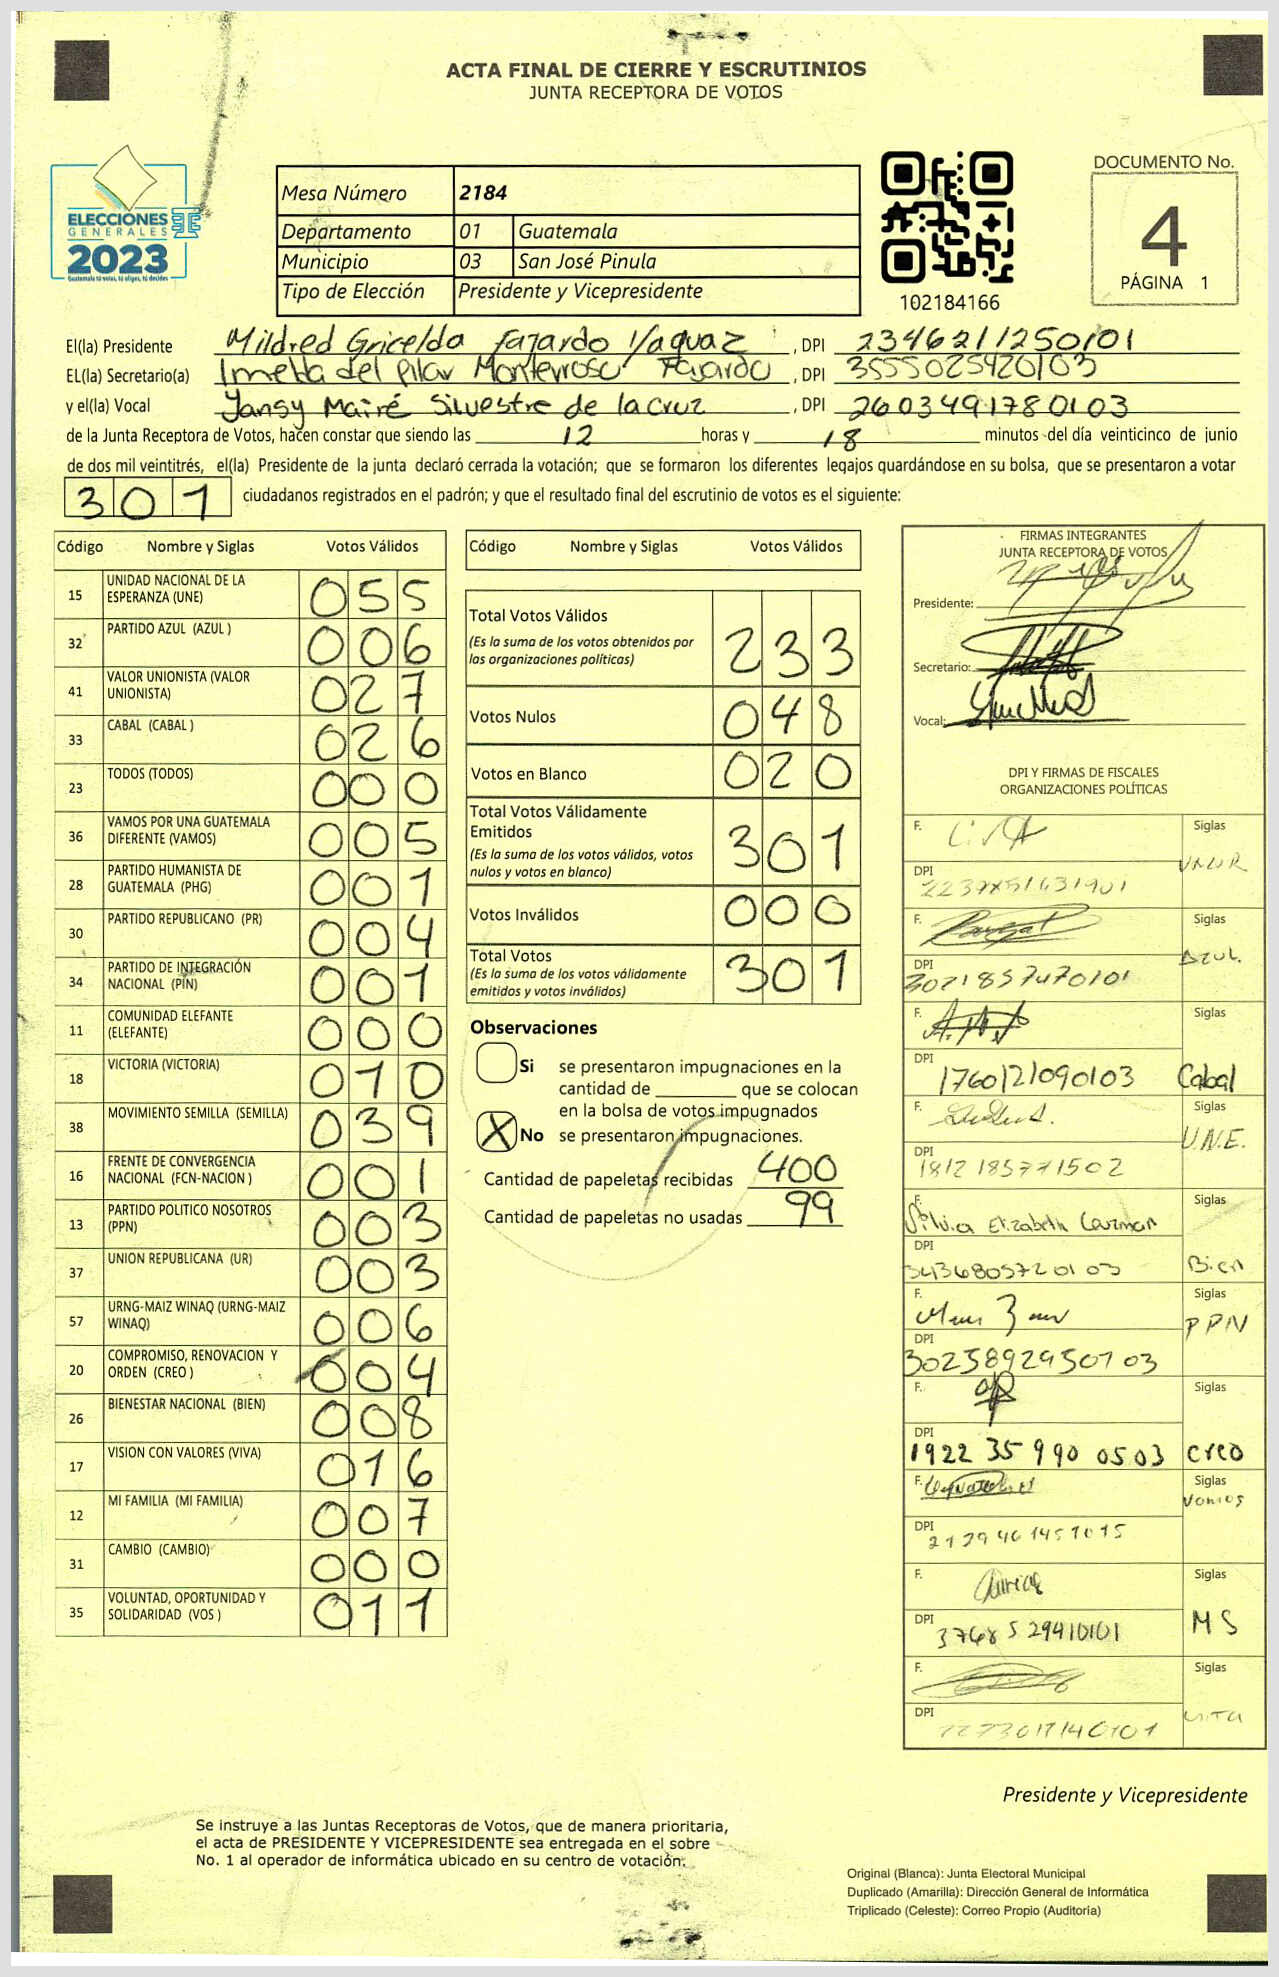 ACTA FINAL DE CIERRE Y ESCRUTINIOS
JUNTA RECEPTORA DE VOTOS
ELECCIONES
GENERALES
2023
Guatemala tú votas, tú eliges, tú decides
Mesa Número 2184
Departamento 01 Guatemala
Municipio 03 San José Pinula
Tipo de Elección Presidente y Vicepresidente
102184166
DOCUMENTO No.
4
PÁGINA 1
El(la) Presidente Mildred Gricelda Fajardo , DPI 2346211250101
EL(la) Secretario(a) Imelda del Pilar Monterroso Fajardo , DPI 3555025420103
y el(la) Vocal Yansy Mairé Silvestre de la Cruz , DPI 2603491780103
de la Junta Receptora de Votos, hacen constar que siendo las 12 horas y 18 minutos del día veinticinco de junio
de dos mil veintitrés, el(la) Presidente de la junta declaró cerrada la votación; que se formaron los diferentes legajos guardándose en su bolsa, que se presentaron a votar
301 ciudadanos registrados en el padrón; y que el resultado final del escrutinio de votos es el siguiente:
Código Nombre y Siglas Votos Válidos
15 UNIDAD NACIONAL DE LA ESPERANZA (UNE) 055
32 PARTIDO AZUL (AZUL ) 006
41 VALOR UNIONISTA (VALOR UNIONISTA) 027
33 CABAL (CABAL ) 026
23 TODOS (TODOS) 000
36 VAMOS POR UNA GUATEMALA DIFERENTE (VAMOS) 005
28 PARTIDO HUMANISTA DE GUATEMALA (PHG) 001
30 PARTIDO REPUBLICANO (PR) 004
34 PARTIDO DE INTEGRACIÓN NACIONAL (PIN) 001
11 COMUNIDAD ELEFANTE (ELEFANTE) 000
18 VICTORIA (VICTORIA) 010
38 MOVIMIENTO SEMILLA (SEMILLA) 039
16 FRENTE DE CONVERGENCIA NACIONAL (FCN-NACION ) 001
13 PARTIDO POLITICO NOSOTROS (PPN) 003
37 UNION REPUBLICANA (UR) 003
57 URNG-MAIZ WINAQ (URNG-MAIZ WINAQ) 006
20 COMPROMISO, RENOVACION Y ORDEN (CREO ) 004
26 BIENESTAR NACIONAL (BIEN) 008
17 VISION CON VALORES (VIVA) 016
12 MI FAMILIA (MI FAMILIA) 007
31 CAMBIO (CAMBIO) 000
35 VOLUNTAD, OPORTUNIDAD Y SOLIDARIDAD (VOS ) 011
Código Nombre y Siglas Votos Válidos
Total Votos Válidos 233
(Es la suma de los votos obtenidos por
las organizaciones políticas)
Votos Nulos 048
Votos en Blanco 020
Total Votos Válidamente
Emitidos 301
(Es la suma de los votos válidos, votos
nulos y votos en blanco)
Votos Inválidos 000
Total Votos 301
(Es la suma de los votos válidamente
emitidos y votos inválidos)
Observaciones
Si se presentaron impugnaciones en la
cantidad de ________ que se colocan
en la bolsa de votos impugnados
X No se presentaron impugnaciones.
Cantidad de papeletas recibidas 400
Cantidad de papeletas no usadas 99
FIRMAS INTEGRANTES
JUNTA RECEPTORA DE VOTOS
Presidente:
Secretario:
Vocal:
DPI Y FIRMAS DE FISCALES
ORGANIZACIONES POLÍTICAS
F. Siglas
VALOR
DPI
F. Siglas
AZUL.
DPI 3021857470101
F. Siglas
DPI 1760121090103 Cabal
F. Siglas
U.N.E.
DPI 1812185771502
F. Silvia Elizabeth Guzman Siglas
DPI 3436805720103 Bien
F. Siglas
PPN
DPI 3025892950103
F. Siglas
DPI 1922 35 990 0503 Creo
F. Siglas
Vamos
DPI
F. Siglas
DPI MS
F. Siglas
DPI
Presidente y Vicepresidente
Se instruye a las Juntas Receptoras de Votos, que de manera prioritaria,
el acta de PRESIDENTE Y VICEPRESIDENTE sea entregada en el sobre
No. 1 al operador de informática ubicado en su centro de votación.
Original (Blanca): Junta Electoral Municipal
Duplicado (Amarilla): Dirección General de Informática
Triplicado (Celeste): Correo Propio (Auditoría)